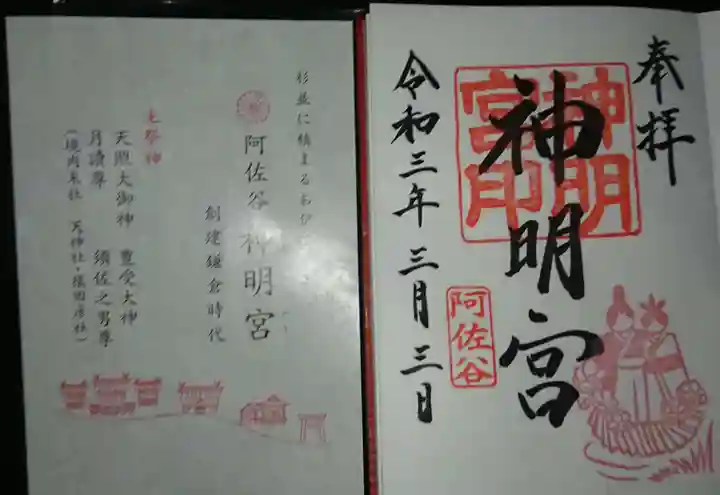 奉拝
神明宮印
神明宮
阿佐谷
令和三年三月三日
杉並に鎮まるおひ
阿佐谷神明宮
創建鎌倉時代
主祭神
天照大御神 豊受大神
月讀尊 須佐之男尊
(境内末社 天神社・猿田彦社)